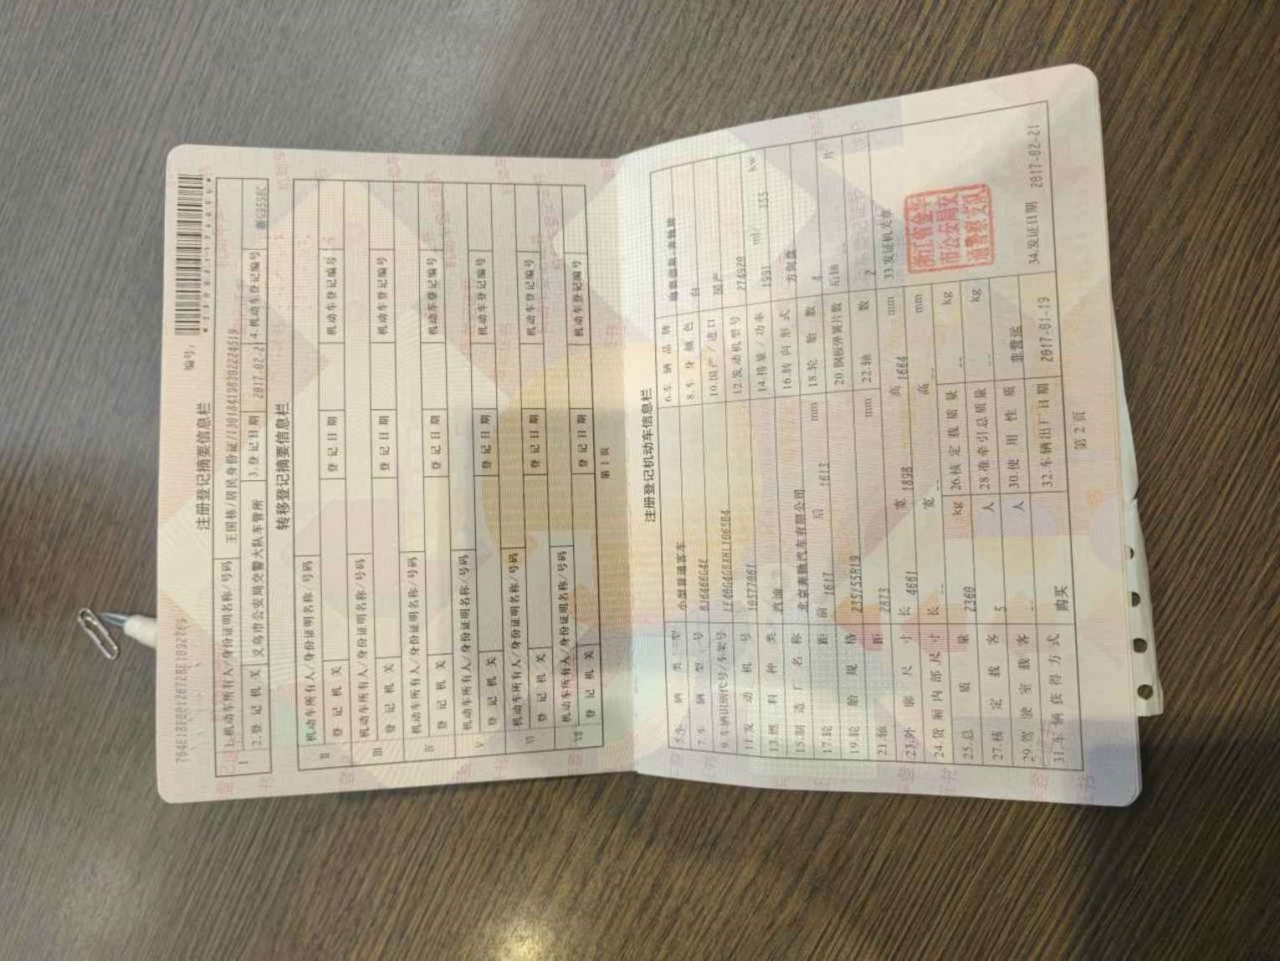 编号:
注册登记摘要信息栏
1.机动车所有人/身份证明名称/号码
2.登记机关 义乌市公安局交警大队车管所 3.登记日期 2017-02-21 4.机动车登记编号
转移登记摘要信息栏
机动车所有人/身份证明名称/号码
II 登记机关 登记日期 机动车登记编号
机动车所有人/身份证明名称/号码
III 登记机关 登记日期 机动车登记编号
机动车所有人/身份证明名称/号码
IV 登记机关 登记日期 机动车登记编号
机动车所有人/身份证明名称/号码
V 登记机关 登记日期 机动车登记编号
机动车所有人/身份证明名称/号码
VI 登记机关 登记日期 机动车登记编号
机动车所有人/身份证明名称/号码
VII 登记机关 登记日期 机动车登记编号
第1页
注册登记机动车信息栏
5.车辆类型 小型普通客车 6.车辆品牌
7.车辆型号 8.车身颜色 白
9.车辆识别代号/车架号 10.国产/进口 国产
11.发动机号 12.发动机型号 274920
13.燃料种类 汽油 14.排量/功率 1991 ml/ 155 kw
15.制造厂名称 北京奔驰汽车有限公司 16.转向形式 方向盘
17.轮距 前 1617 后 1613 mm 18.轮胎数 4
19.轮胎规格 235/55R19 20.钢板弹簧片数 后轴 片
21.轴距 2873 mm 22.轴数 2
23.外廓尺寸 长 4661 宽 1898 高 1664 mm 33.发证机关章
24.货厢内部尺寸 长 -- 宽 -- 高 -- mm
25.总质量 2360 kg 26.核定载质量 -- kg
27.核定载客 5 人 28.准牵引总质量 -- kg
29.驾驶室载客 -- 人 30.使用性质 非营运
31.车辆获得方式 购买 32.车辆出厂日期 2017-01-19 34.发证日期 2017-02-21
浙江省金华
市公安局交
通警察支队
第2页